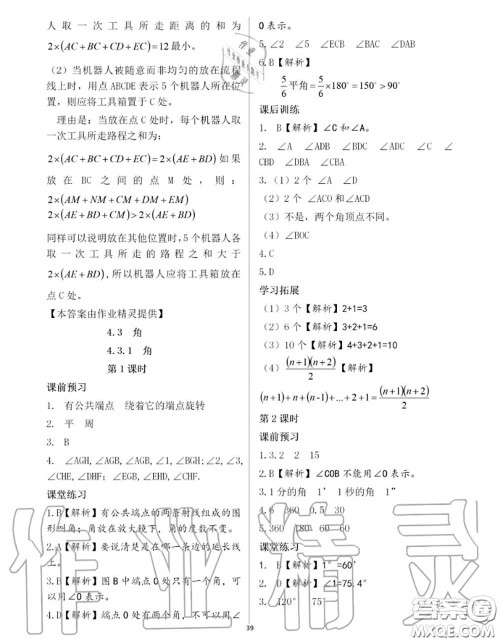 人取一次工具所走距离的和为
2×(AC+BC+CD+EC)=12最小。
（2）当机器人被随意而非均匀的放在流程
线上时，用点 ABCDE 表示 5 个机器人所在位
置，则应将工具箱置于 C 处。
理由是：当放在点 C 处时，每个机器人取
一次工具所走路程之和为：
2×(AC+BC+CD+EC)=2×(AE+BD)如果
放在 BC 之间的点 M 处，则：
2×(AM+NM+CM+DM+EM)
2×(AE+BD+CM)>2×(AE+BD)
同样可以说明放在其他位置时,5 个机器人各
取一次工具所走的路程之和大于
2×(AE+BD),所以机器人应将工具箱放在
点 C 处。
【本答案由作业精灵提供】
4.3 角
4.3.1 角
第 1 课时
课前预习
1. 有公共端点 绕着它的端点旋转
2. 平 周
3. B
4. ∠AGH,∠AGB,∠AGB,∠1,∠BGH;∠2,∠3,
∠CHE,∠DHF；∠EGB,∠CHF,∠EHD.
课堂练习
1.B【解析】有公共端点的两条射线组成的图
形圆角；角放在放大镜下，角的度数不变。
2.A【解析】要说清是在哪一条边的延长线
上。
3.C【解析】图 B 中端点 O 处只有一个角，可
以用∠O 表示。
4.D【解析】端点 O 处有两个角，不可用∠
O 表示。
5.∠2 ∠5 ∠ECB ∠BAC
6.B【解析】5/6平角=5/6×180°=150°>90°
课后训练
1. B【解析】∠C 和∠A。
2. ∠A ∠ADB ∠BDC ∠ADC ∠C ∠
DBC ∠ABD ∠ABC
3.（1）2 个 ∠A ∠D
（2）2 个 ∠ACO 和∠ACD
（3）不是，两个角顶点不同。
（4）∠BOC
4.C
5.D
学习拓展
（1）3 个【解析】2+1=3
（2）6 个【解析】3+2+1=6
（3）10 个【解析】4+3+2+1=10
（4）(n+1)(n+2)/2【解析】
(n+1)+(n)+(n-1)+...+2+1=(n+1)(n+2)/2
第 2 课时
课前预习
1.3.2 2 15
2.B【解析】∠COB 不能用∠O 表示。
3.1 分的角 1′ 1 秒的角 1″
4.6 360 0.5 30
5.360 180 60 60
课堂练习
1. B【解析】1°=60′
2. D【解析】∠1=75.4°
3. 120° 75°
39
作业精灵
答案圈
MXQE.COM